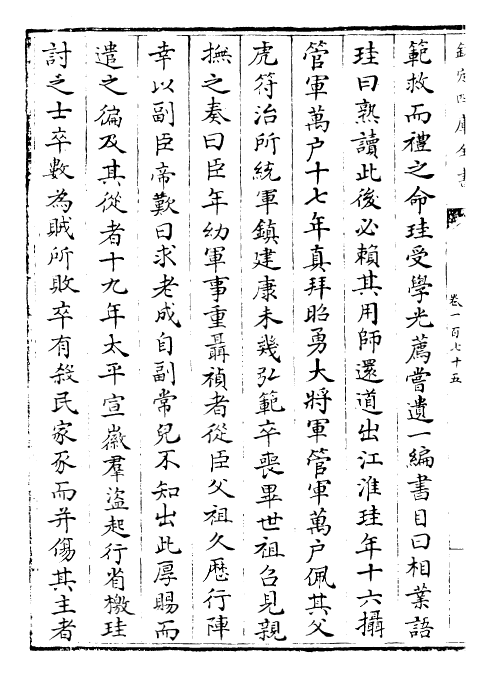 欽定四庫全書
卷一百七十五
範救而禮之命珪受學光薦嘗遺一編書目曰相業語
珪曰熟讀此後必賴其用師還道出江淮珪年十六攝
管軍萬户十七年真拜昭勇大將軍管軍萬户佩其父
虎符治所統軍鎮建康未幾弘範卒喪畢世祖召見親
撫之奏曰臣年幼軍事重聶禎者從臣父祖久歷行陣
幸以副臣帝歎曰求老成自副常兒不知出此厚賜而
遣之徧及其從者十九年太平宣徽羣盜起行省檄珪
討之士卒數為賊所敗卒有殺民家豕而并傷其主者